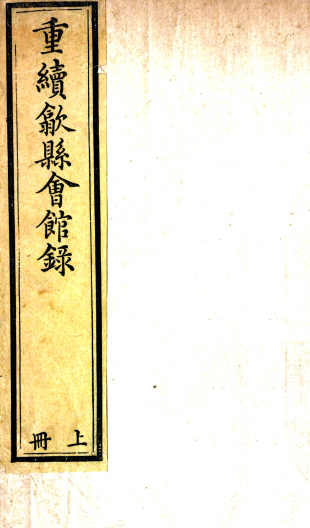 重續歙縣會館錄
上冊